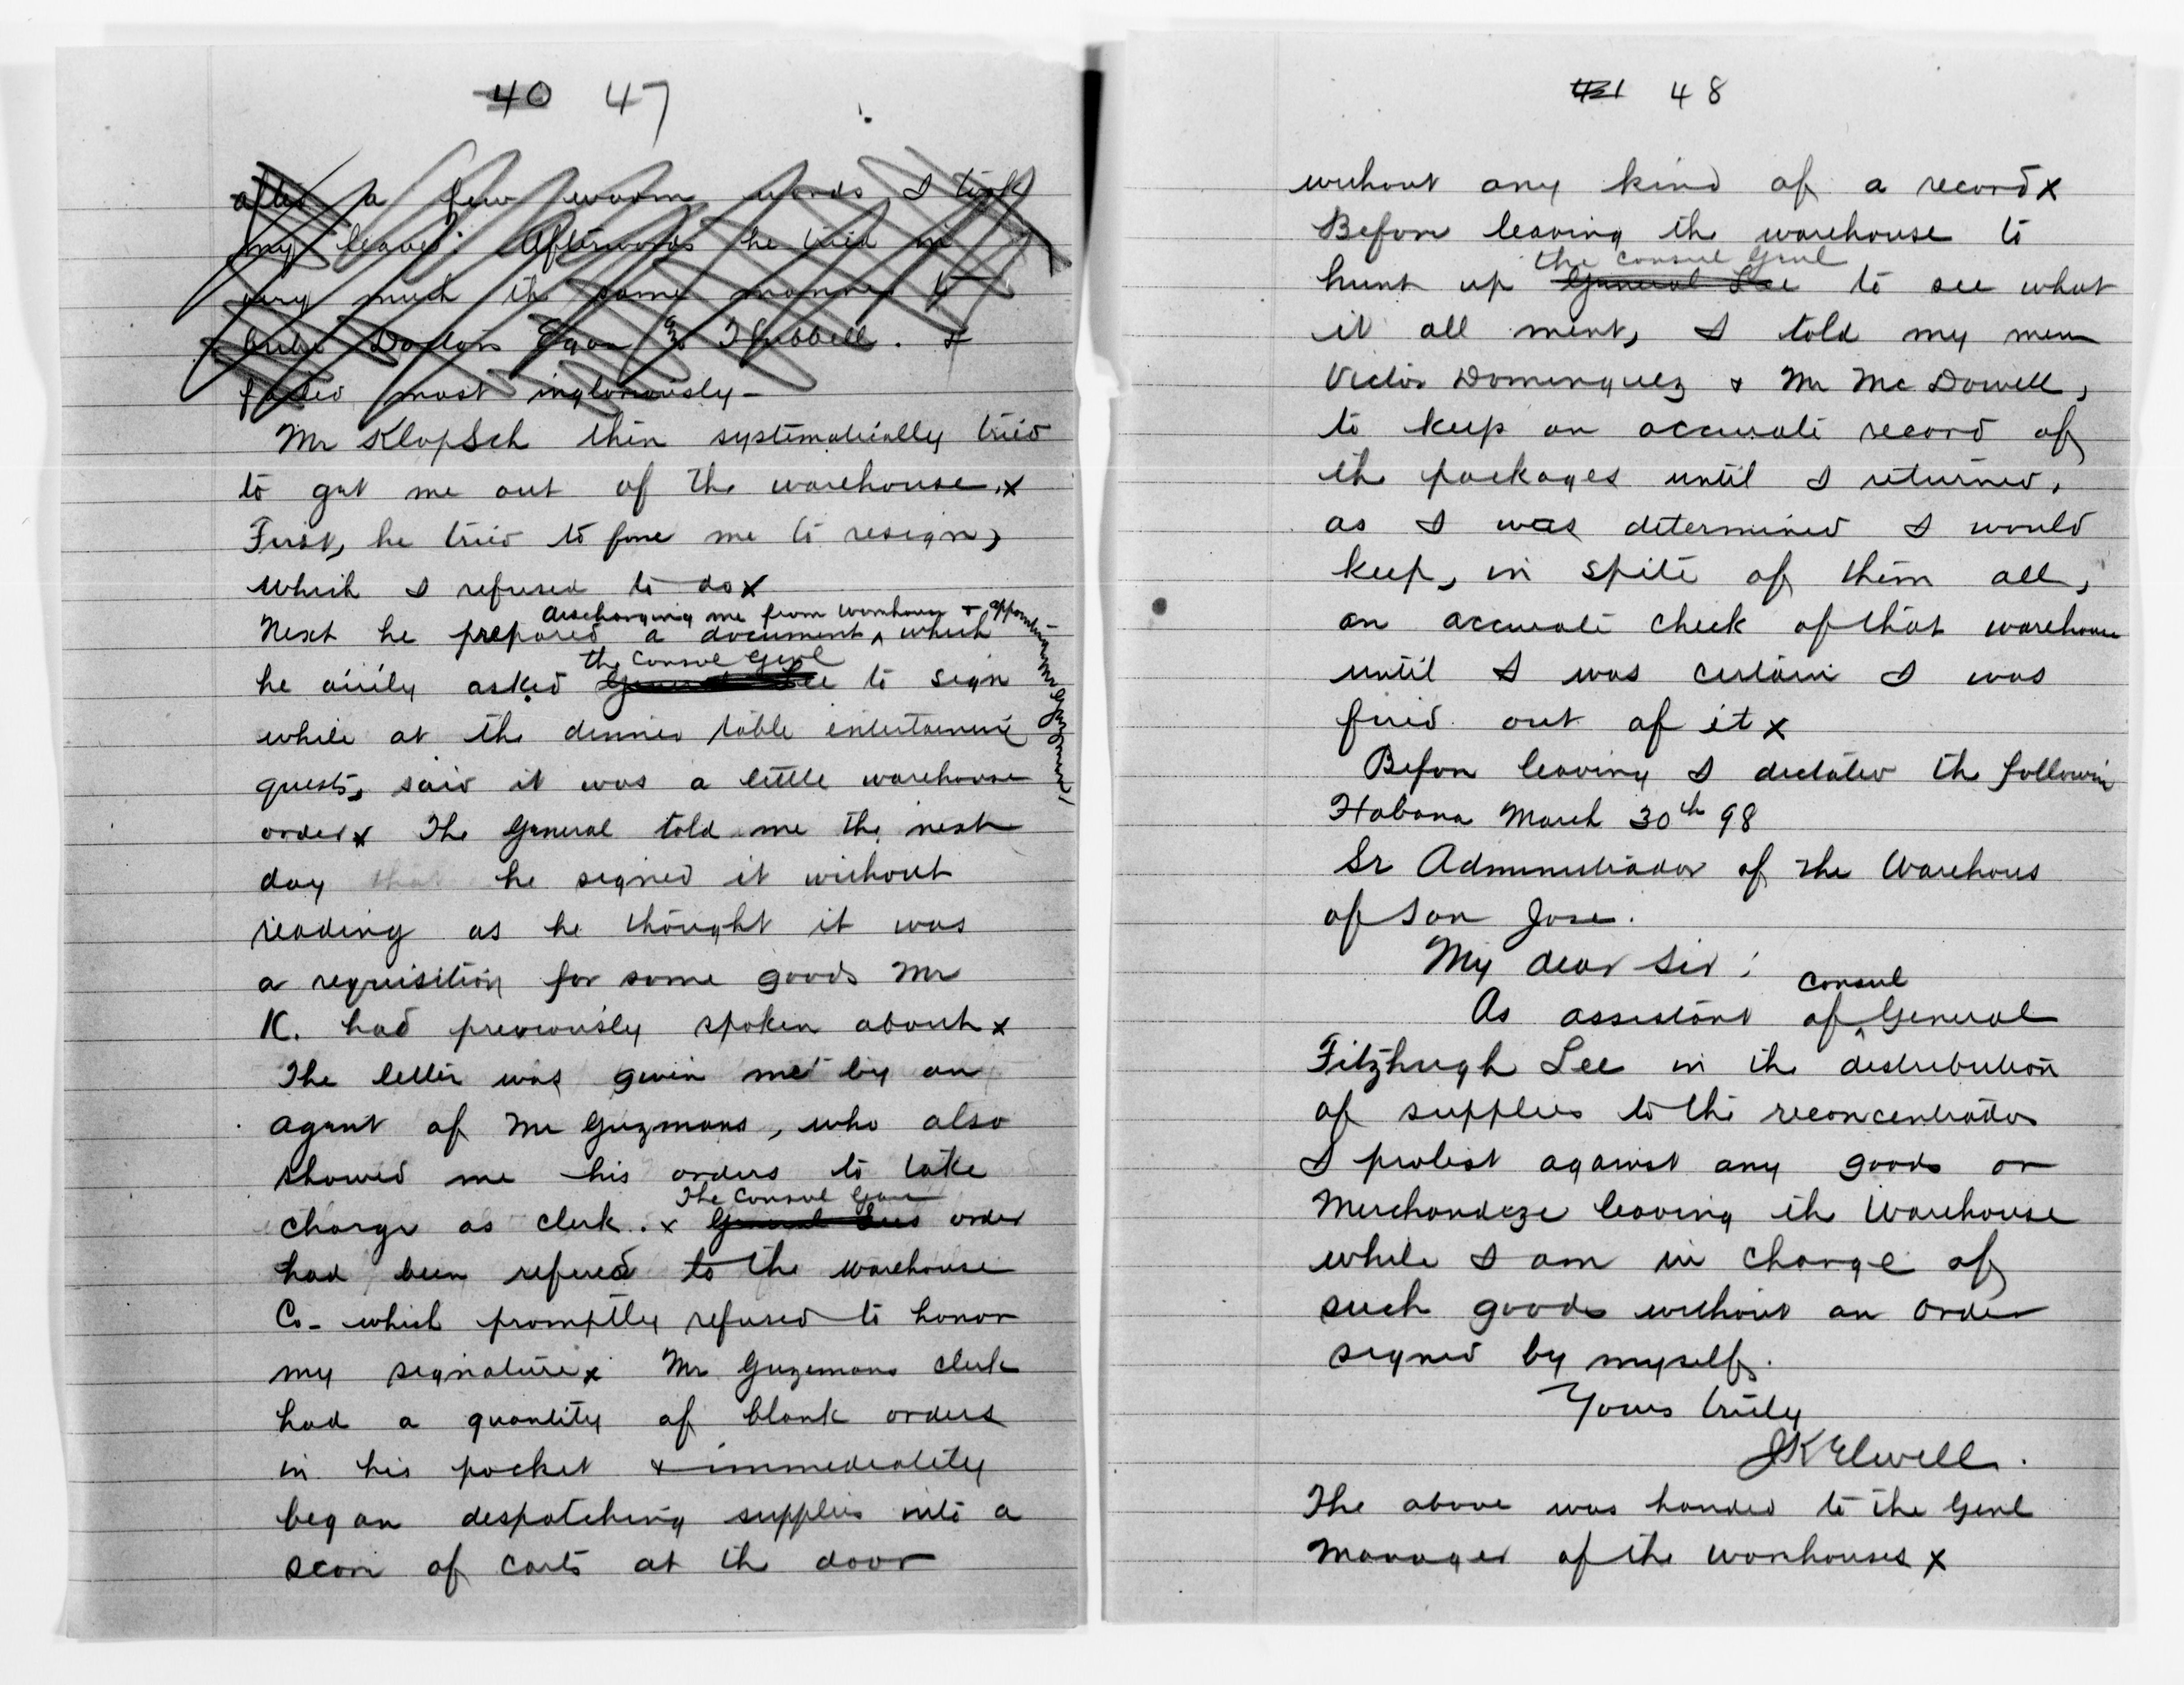 40 47
after a few warm words I took
my leave. Afterwards he tried in
very much the same manner to
bribe Doctors Egan & Hubbell. &
failed most ingloriously-
Mr Klopsch then systematically tried
to get me out of the warehouse. x
First, he tried to force me to resign,
which I refused to do x
discharging me from warehouse & appointing Mr Guzman
Next he prepared a document ^ which
the Consul Genl
he airily asked General Lee to sign
while at the dinner table entertaining
guests, said it was a little warehouse
order x The General told me the next
day that he signed it without
reading as he thought it was
a requisition for some goods Mr
K. had previously spoken about x
The letter was given me by an
agent of Mr Guzmans, who also
showed me his orders to take
The Consul Gens
charge as clerk. x General Lees order
had been refered to the warehouse
Co- which promptly refused to honor
my signature x Mr Guzemans clerk
had a quantity of blank orders
in his pocket & immediately
began despatching supplies into a
score of carts at the door
41 48
without any kind of a record x
Before leaving the warehouse to
the Consul Genl
hunt up General Lee to see what
it all ment, I told my men
Victor Dominquez & Mr McDowell,
to keep an accurate record of
the packages until I returned,
as I was determined I would
keep, in spite of them all,
an accurate check of that warehouse
until I was certain I was
fired out of it x
Before leaving I dictated the followin
Habana March 30th 98
Sr Administrador of the Warehous
of San Jose.
My dear Sir:
Consul
As assistant of ^ General
Fitzhugh Lee in the distribution
of supplies to the reconcentrados
I protest against any goods or
Merchandize leaving the Warehouse
while I am in charge of
such goods without an order
signed by myself.
Yours truly
JK Elwell.
The above was handed to the Genl
Manager of the warehouses x